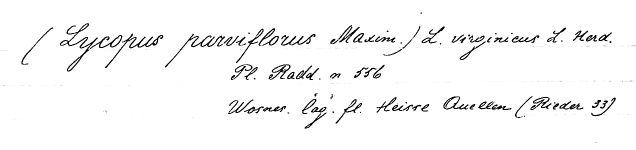 (Lycopus parviflorus Maxim.) L. virginicus L. Herd.
Pl. Radd. n 556
fl. Heisse Quellen (Rieder 33)